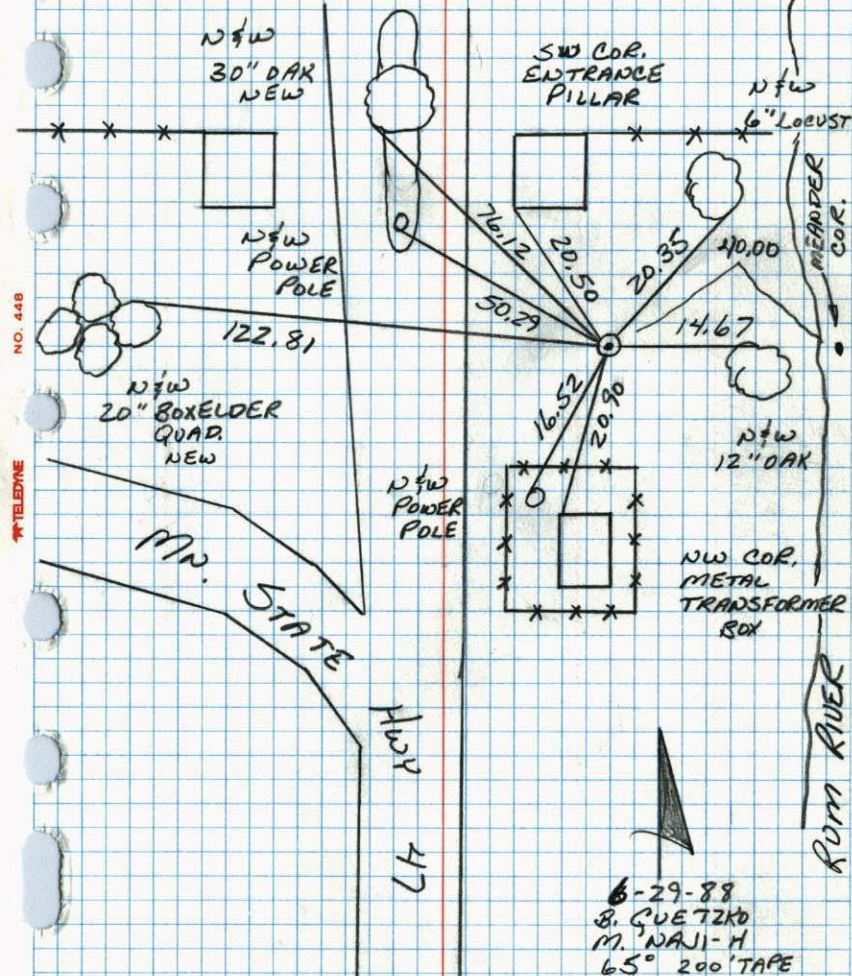 N & W
30" OAK
NEW
SW COR.
ENTRANCE
PILLAR
N & W
6" LOCUST
MEANDER
COR.
N & W
POWER
POLE
76.12
20.50
20.35
40.00
50.29
14.67
122.81
N & W
20" BOXELDER
QUAD.
NEW
16.52
20.90
N & W
12" OAK
N & W
POWER
POLE
NW COR.
METAL
TRANSFORMER
BOX
MN.
STATE
HWY
47
RUM RIVER
6-29-88
B. GUETZKO
M. NAJI-H
65° 200' TAPE
NO. 448
TELEDYNE